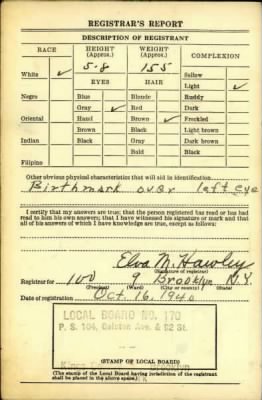 REGISTRAR'S REPORT
DESCRIPTION OF REGISTRANT
RACE HEIGHT (Approx.) WEIGHT (Approx.) COMPLEXION
5-8 155 Sallow
White ✓ EYES HAIR Light ✓
Negro Blue Blonde Ruddy
Gray ✓ Red Dark
Oriental Hazel Brown ✓ Freckled
Brown Black Light brown
Indian Black Gray Dark brown
Bald Black
Filipino
Other obvious physical characteristics that will aid in identification
Birthmark over left eye
I certify that my answers are true; that the person registered has read or has had read to him his own answers; that I have witnessed his signature or mark and that all of his answers of which I have knowledge are true, except as follows:
Elva M. Hawley
(Signature of registrar)
Registrar for 100 Brooklyn N.Y.
(Precinct) (Ward) (City or county) (State)
Date of registration Oct. 16, 1940
LOCAL BOARD NO. 170
P. S. 104, Ave. & 92 St.
Brooklyn
(STAMP OF LOCAL BOARD)
(The stamp of the Local Board having jurisdiction of the registrant shall be placed in the above space.)